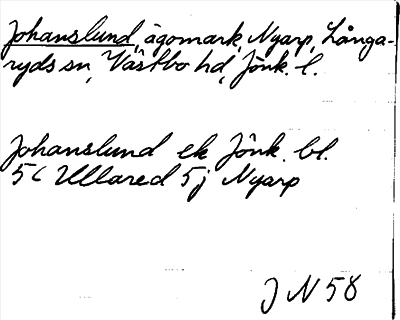 Johanslund, ägomark, Nyarp, Långa-
ryds sn, Västbo hd, Jönk. l.
Johanslund ek Jönk. bl.
5c Ullared 5j Nyarp
J N 58